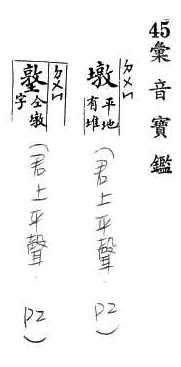 45彙音寶鑑
ㄉㄨㄣ
墩 平地有堆
(君上平聲. P2)
ㄉㄨㄣ
墪 仝墩字
(君上平聲. P2)